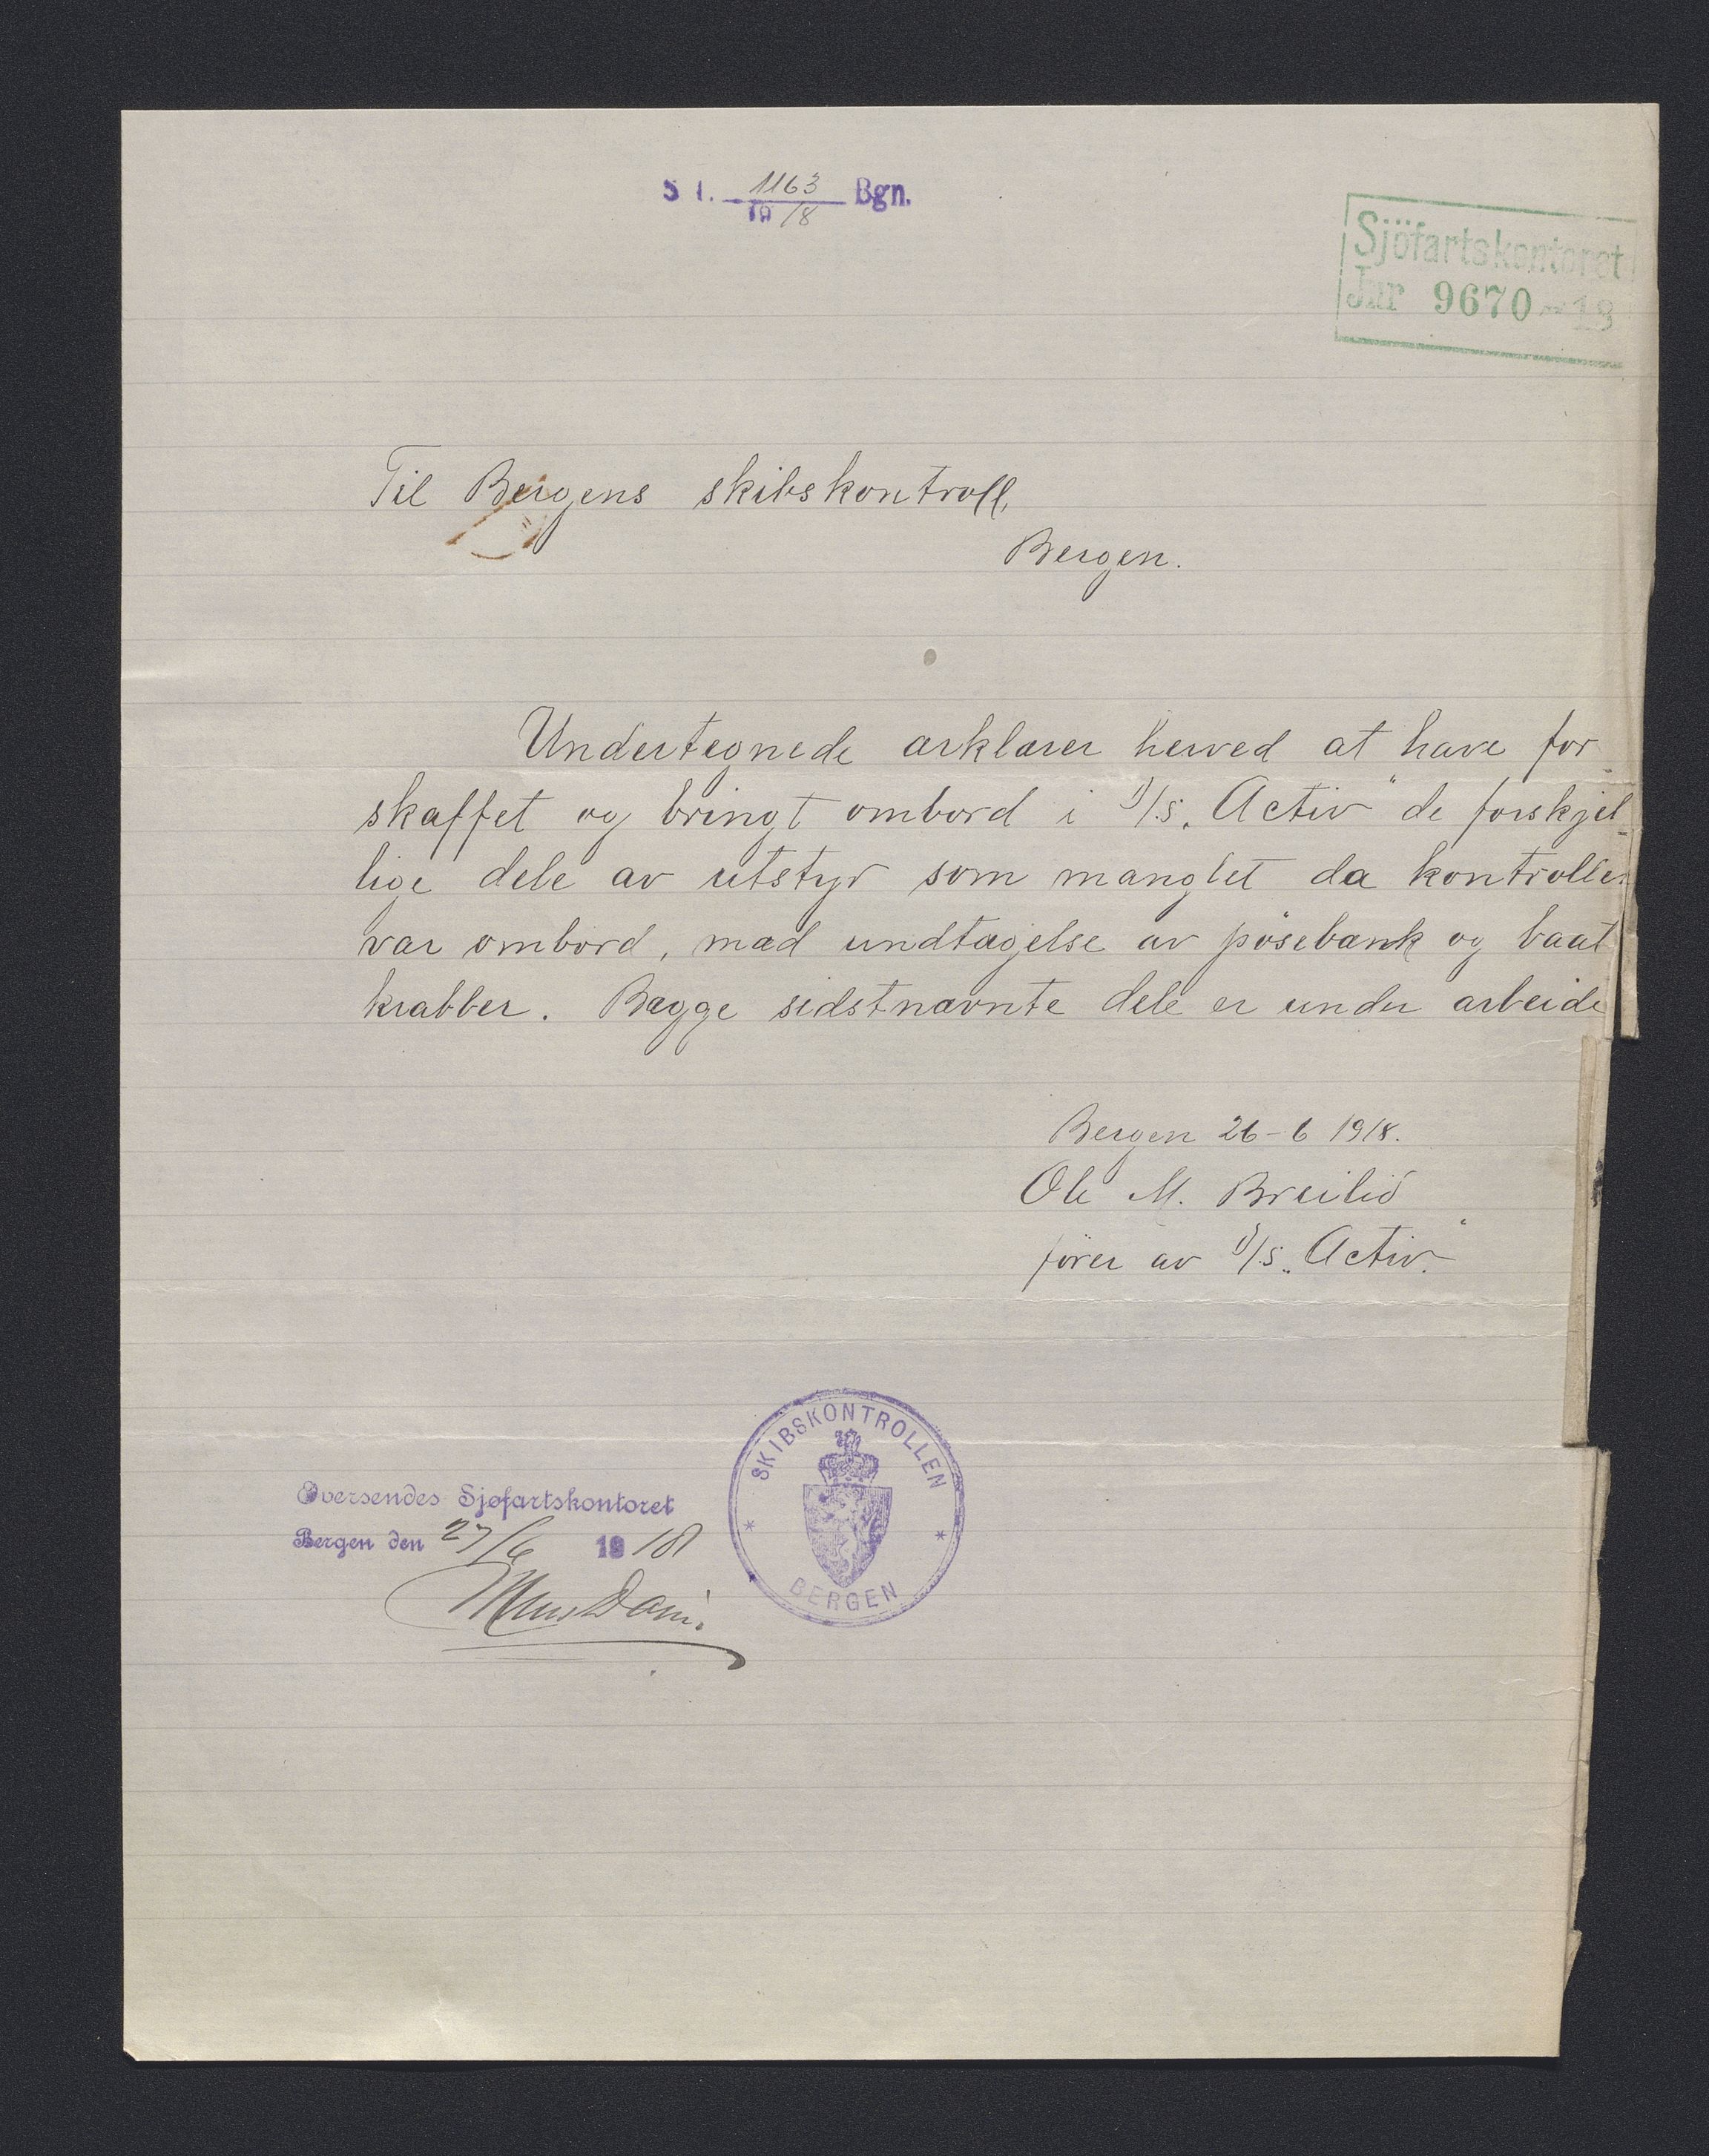 S I. 1163 Bgn.
19 18
Sjöfartskontoret
Jnr 9670 - 18
Til Bergens skibskontroll,
Bergen.
Undertegnede ærklærer herved at have for-
skaffet og bringt ombord i D/S. "Activ" de forskjel-
lige dele av utstyr som manglet da kontrollen
var ombord, mæd undtagelse av pösebænk og baat
krabber. Bægge sidstnævnte dele er under arbeide
Bergen 26-6 1918.
Ole M. Breiliö
förer av D/S. "Activ."
Oversendes Sjøfartskontoret
Bergen den 27/6 1918
SKIBSKONTROLLEN
BERGEN